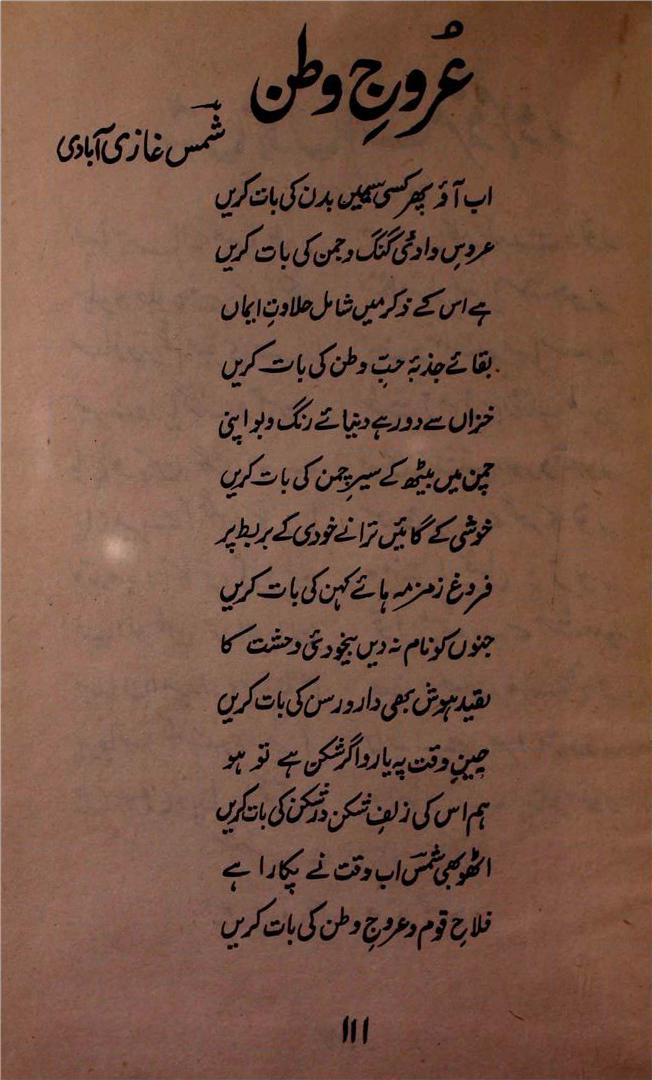 عُروجِ وطن
شمس غازی آبادی
اب آؤ پھر کسی سیمیں بدن کی بات کریں
عروسِ وادئ گنگ و جمن کی بات کریں
ہے اس کے ذکر میں شامل حلاوتِ ایماں
بقائے جذبۂ حبِّ وطن کی بات کریں
خزاں سے دور ہے دنیائے رنگ و بو اپنی
چمن میں بیٹھ کے سیرِ چمن کی بات کریں
خوشی کے گائیں ترانے خودی کے بربط پر
فروغِ زمزمہ ہائے کہن کی بات کریں
جنوں کو نام نہ دیں بیخودئ وحشت کا
بقید ہوش بھی دار و رسن کی بات کریں
جبینِ وقت پہ یارو اگر شکن ہے تو ہو
ہم اس کی زلفِ شکن در شکن کی بات کریں
اٹھو بھی شمسؔ اب وقت نے پکارا ہے
فلاحِ قوم و عروجِ وطن کی بات کریں
۱۱۱